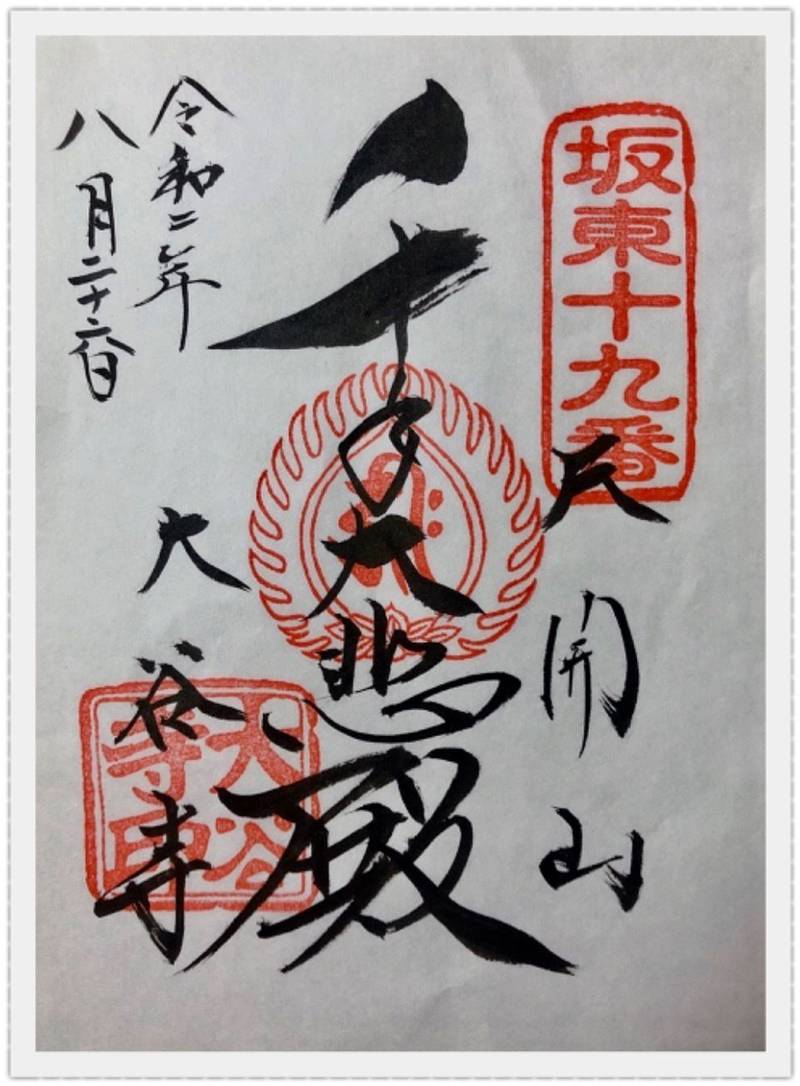 坂東十九番
天開山
千手大悲殿
令和二年
八月二十六日
大谷寺
大谷寺印